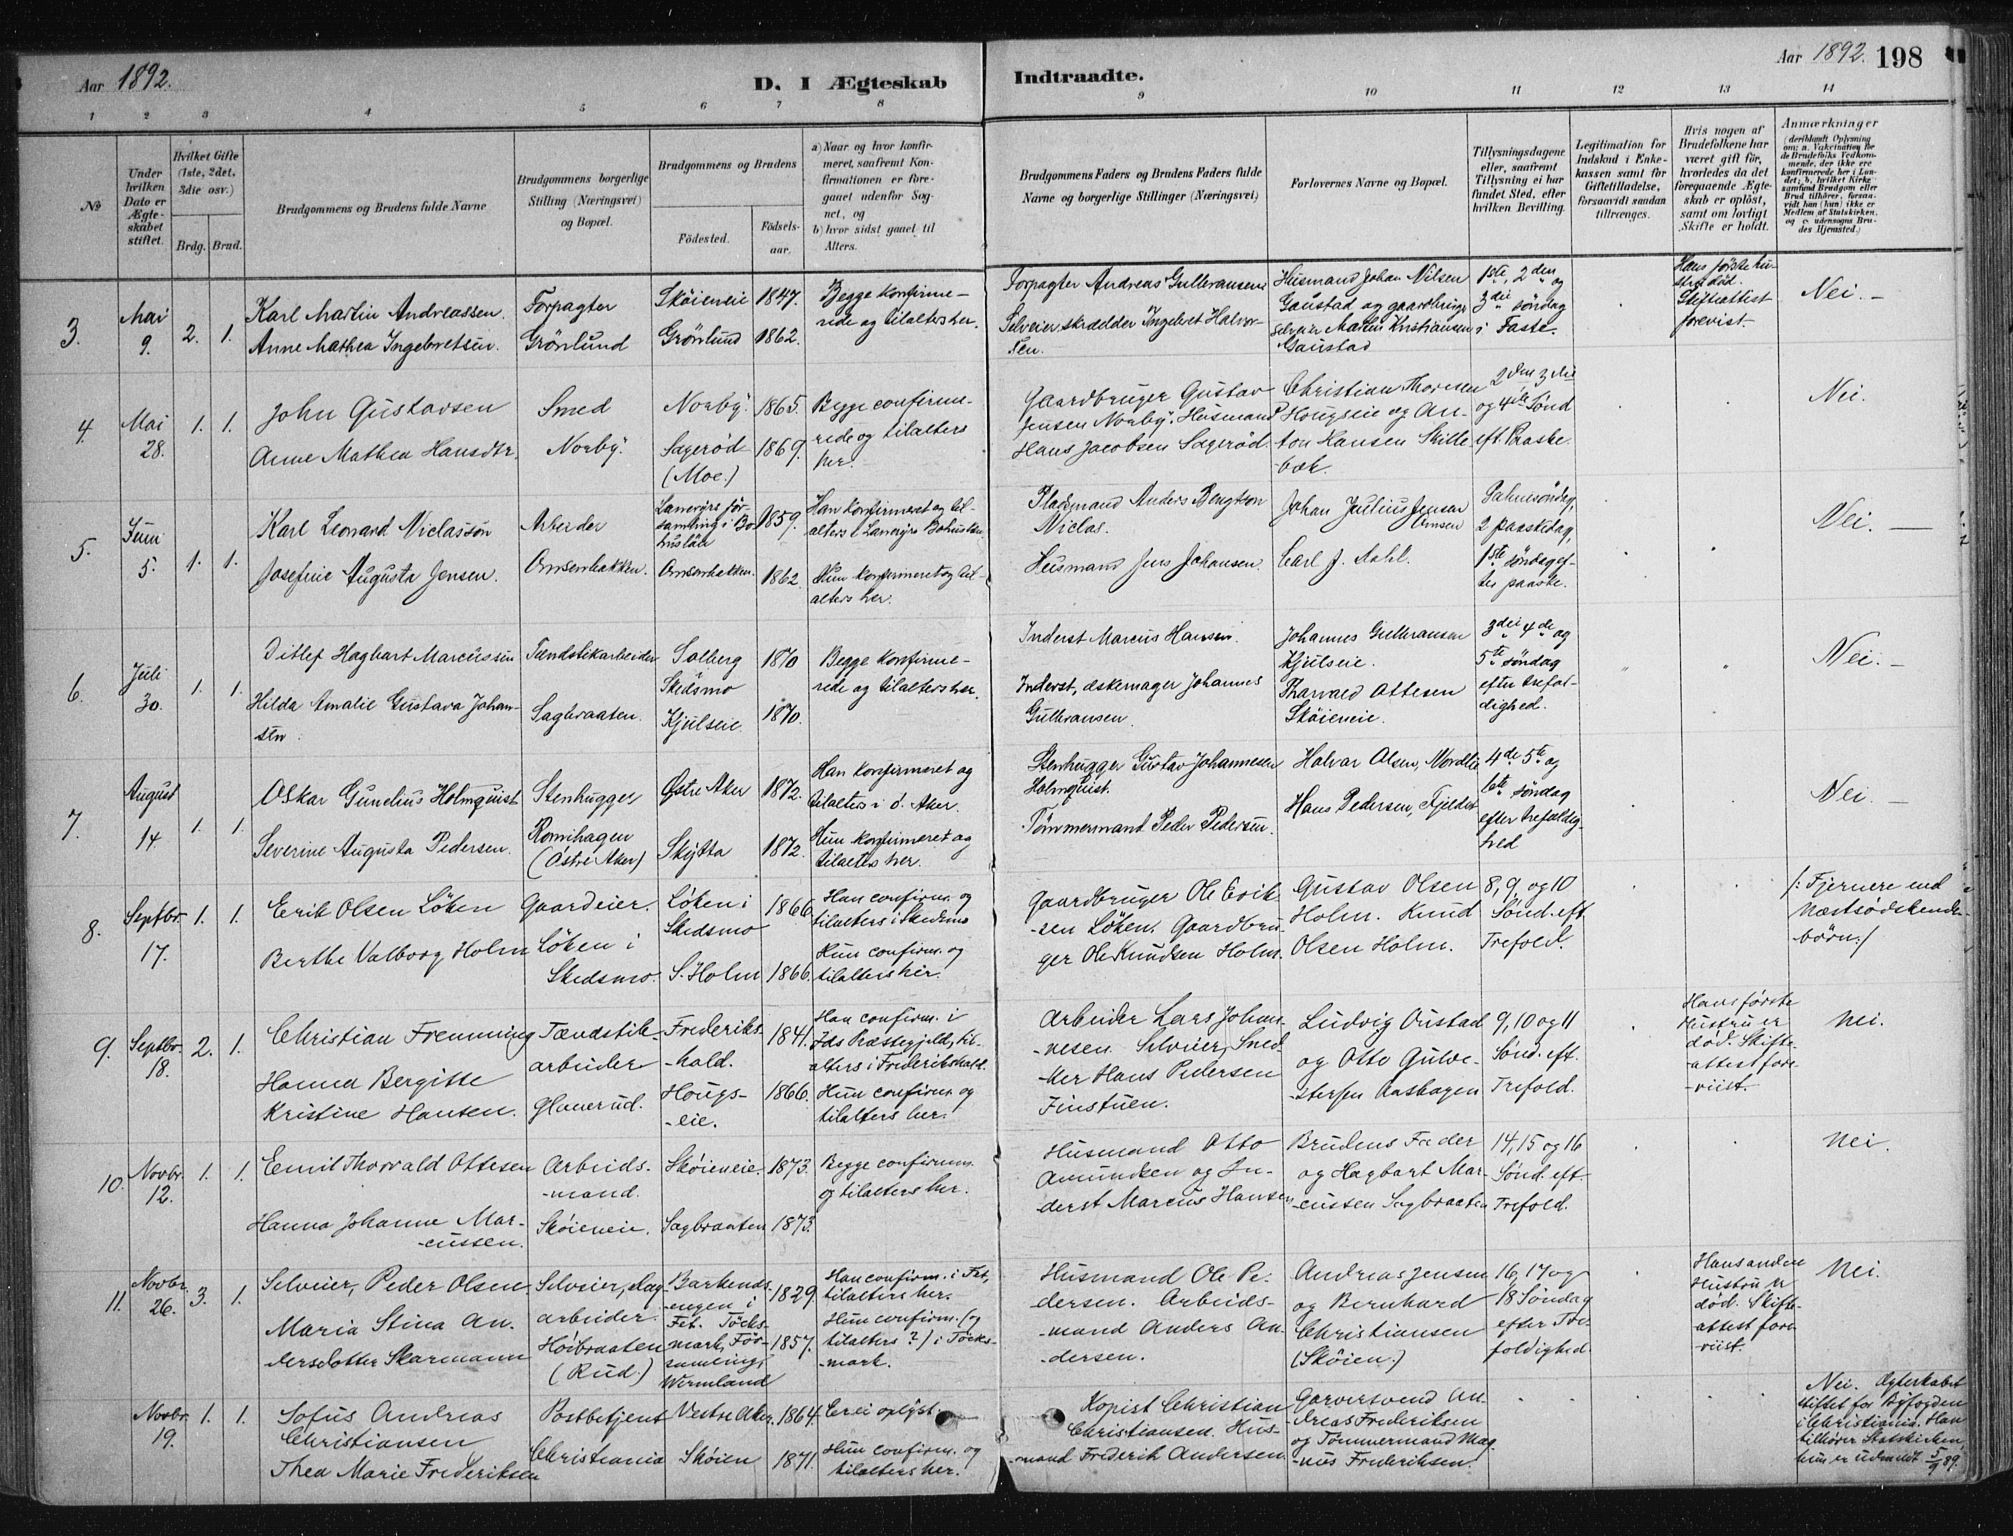 Aar 1892.
D. I Ægteskab
Indtraadte.
Aar 1892. 198
1 2 3 4 5 6 7 8 9 10 11 12 13 14
No
Under hvilken Dato er Ægteskabet stiftet.
Hvilket Gifte (1ste, 2det, 3die osv.)
Brdg. Brud.
Brudgommens og Brudens fulde Navne
Brudgommens borgerlige Stilling (Næringsvei) og Bopæl.
Brudgommens og Brudens
Födested.
Födselsaar.
a) Naar og hvor konfirmeret, saafremt Konfirmationen er foregaaet udenfor Sognet, og
b) hvor sidst gaaet til Alters.
Brudgommens Faders og Brudens Faders fulde Navne og borgerlige Stillinger (Næringsvei)
Forlovernes Navne og Bopæl.
Tillysningsdagene eller, saafremt Tillysning ei har fundet Sted, efter hvilken Bevilling.
Legitimation for Indskud i Enkekassen samt for Giftetilladelse, forsaavidt saadan tiltrænges.
Hvis nogen af Brudefolkene har været gift för, hvorledes da det foregaaende Ægteskab er oplöst, samt om lovligt Skifte er holdt.
Anmærkninger (deriblandt Oplysning om: a. Vakcination for de Brudefolks Vedkommende, der ikke ere konfirmerede her i Landet; b. hvilket Kirkesamfund Brudgom eller Brud tilhörer, forsaavidt han (hun) ikke er Medlem af Statskirken, og c. udensogns Brudes Hjemsted.)
3. Mai 9. 2. 1.
Karl Martin Andreassen.
Anne Mathea Ingebretsen.
Forpagter
Grönlund
Sköieneie 1847.
Grönlund 1862.
Begge konfirmerede og tilalters her.
Forpagter Andreas Gulbransen
Selveier, skrædder Ingebret Halvorsen.
Husmand Johan Nilsen Gaustad og gaardbruger selveier Martin Kristiansen Gaustad
1ste, 2den og 3die söndag i Faste
Hans første hustru död. Skifteattest forevist.
Nei.
4. Mai 28. 1. 1.
John Gustavsen
Anne Mathea Hansdtr.
Smed
Norby.
Norby. 1865.
Sagerød (Moe.) 1869.
Begge confirmerede og tilalters her.
Gaardbruger Gustav Jensen Norby. Husmand Hans Jacobsen Sagerød.
Christian Thoresen Hougseie og Anton Hansen Skillebæk.
2den 3die og 4de Sønd eft. Paaske.
Nei.
5. Juni 5. 1. 1.
Karl Leonard Niclasson
Josefine Augusta Jensen.
Arbeider
Omsenbakken.
församling i Bohuslän 1859.
Omsenbakken. 1862
Han konfirmeret og tilalters i
Hun konfirmeret og tilalters her.
Pladsmand Anders Bengtson Niclas.
Husmand Jens Johansen
Johan Julius Jensen Omsen
Carl J. Dahl.
Palmesöndag, 2 paaskedag, 1ste söndag efter paaske.
Nei.
6. Juli 30. 1. 1.
Ditlef Hagbart Marcussen
Hilda Amalie Gustava Johansen.
Tændstikarbeider
Sagbraaten.
Solberg Skedsmo 1870
Kjulseie 1870.
Begge konfirmerede og tilalters her.
Inderst Marcus Hansen.
Inderst, æskemager Johannes Gulbransen.
Johannes Gulbransen Kjulseie.
Tharvald Ottesen Sköieneie.
3die 4de og 5te söndag efter trefoldighed.
Nei.
7. August 14 1. 1.
Oskar Gunelius Holmquist
Severine Augusta Pedersen.
Stenhugger
Romihagen (Östre Aker)
Østre Aker 1872.
Skytta 1872.
Han konfirmeret og tilalters i ö. Aker.
Hun konfirmeret og tilalters her.
Stenhugger Gustav Johannesen Holmquist.
Tömmermand Peder Pedersen.
Halvar Olsen, Nordlie
Hans Pedersen, Fjeldet
4de 5te og 6te söndag efter trefoldighed
Nei.
8. Septbr. 17. 1. 1.
Erik Olsen Löken
Berthe Valborg Holm
Gaardeier.
Löken i Skedsmo.
Löken i Skedsmo 1866.
S. Holm 1866.
Han confirm. og tilalters i Skedsmo
Hun confirm. og tilalters her.
Gaardbruger Ole Eriksen Löken. Gaardbruger Ole Knudsen Holm.
Gustav Olsen Holm. Knud Olsen Holm.
8, 9, og 10 Sönd. eft. Trefold.
/: Fjernere end Næstsödskendebörn :/
9. Septbr. 18. 2. 1.
Christian Fremming
Hanna Bergitte Kristine Hansen.
Tændstikarbeider
Glanerud.
Frederikshald. 1841.
Hougseie. 1866.
Han confirm. i Ids Præstegjeld, tilalters i Frederikshald.
Hun confirm. og tilalters her.
Arbeider Lars Johannesen. Selveier, Snedker Hans Pedersen Finstuen.
Ludvig Oustad og Otto Gulvestersen Aashagen
9, 10 og 11 Sönd. eft. Trefold.
Hans første Hustru er død. Skifteattest foreviist.
Nei.
10. Novbr. 12. 1. 1.
Emil Thorvald Ottesen
Hanna Johanne Marcussen.
Arbeidsmand.
Sköieneie.
Sköieneie. 1873.
Sagbraaten 1873.
Begge confirm. og tilalters her.
Husmand Otto Amundsen og Inderst Marcus Hansen
Brudens Fader og Hagbart Marcussen Sagbraaten
14, 15 og 16 Sönd. eft. Trefold.
Nei.
11. Novbr. 26. 3. 1.
Selveier, Peder Olsen
Maria Stina Andersdotter Skarmann
Selveier, dagarbeider.
Høibraaten (Rud.)
Barkendsengen i Fet. 1829.
Töcksmark, Församling, Wermland 1857.
Han confirm. i Fet, tilalters her.
Hun confirm. (og tilalters?) i Töcksmark.
Husmand Ole Pedersen. Arbeidsmand Anders Andersen.
Andreas Jensen og Bernhard Christiansen (Skøien.)
16, 17 og 18 Søndag efter Trefoldighed
Hans anden Hustru er død. Skifteattest foreviist.
Nei.
Novbr. 19. 1. 1.
Sofus Andreas Christiansen
Thea Marie Frederiksen
Postbetjent
Christiania
Vestre Aker 1864.
Skøien 1871.
Er ei oplyst.
Hun confirm. og tilalters her.
Kopist Christian Christiansen. Husmand Frederik Andersen.
Garversvend Andreas Frederiksen og Tömmermand Magnus Frederiksen.
Nei. Ægteskabet stiftet for Byfogden i Christiania. Han tilhører Statskirken, hun er udmeldt 5/9 89.